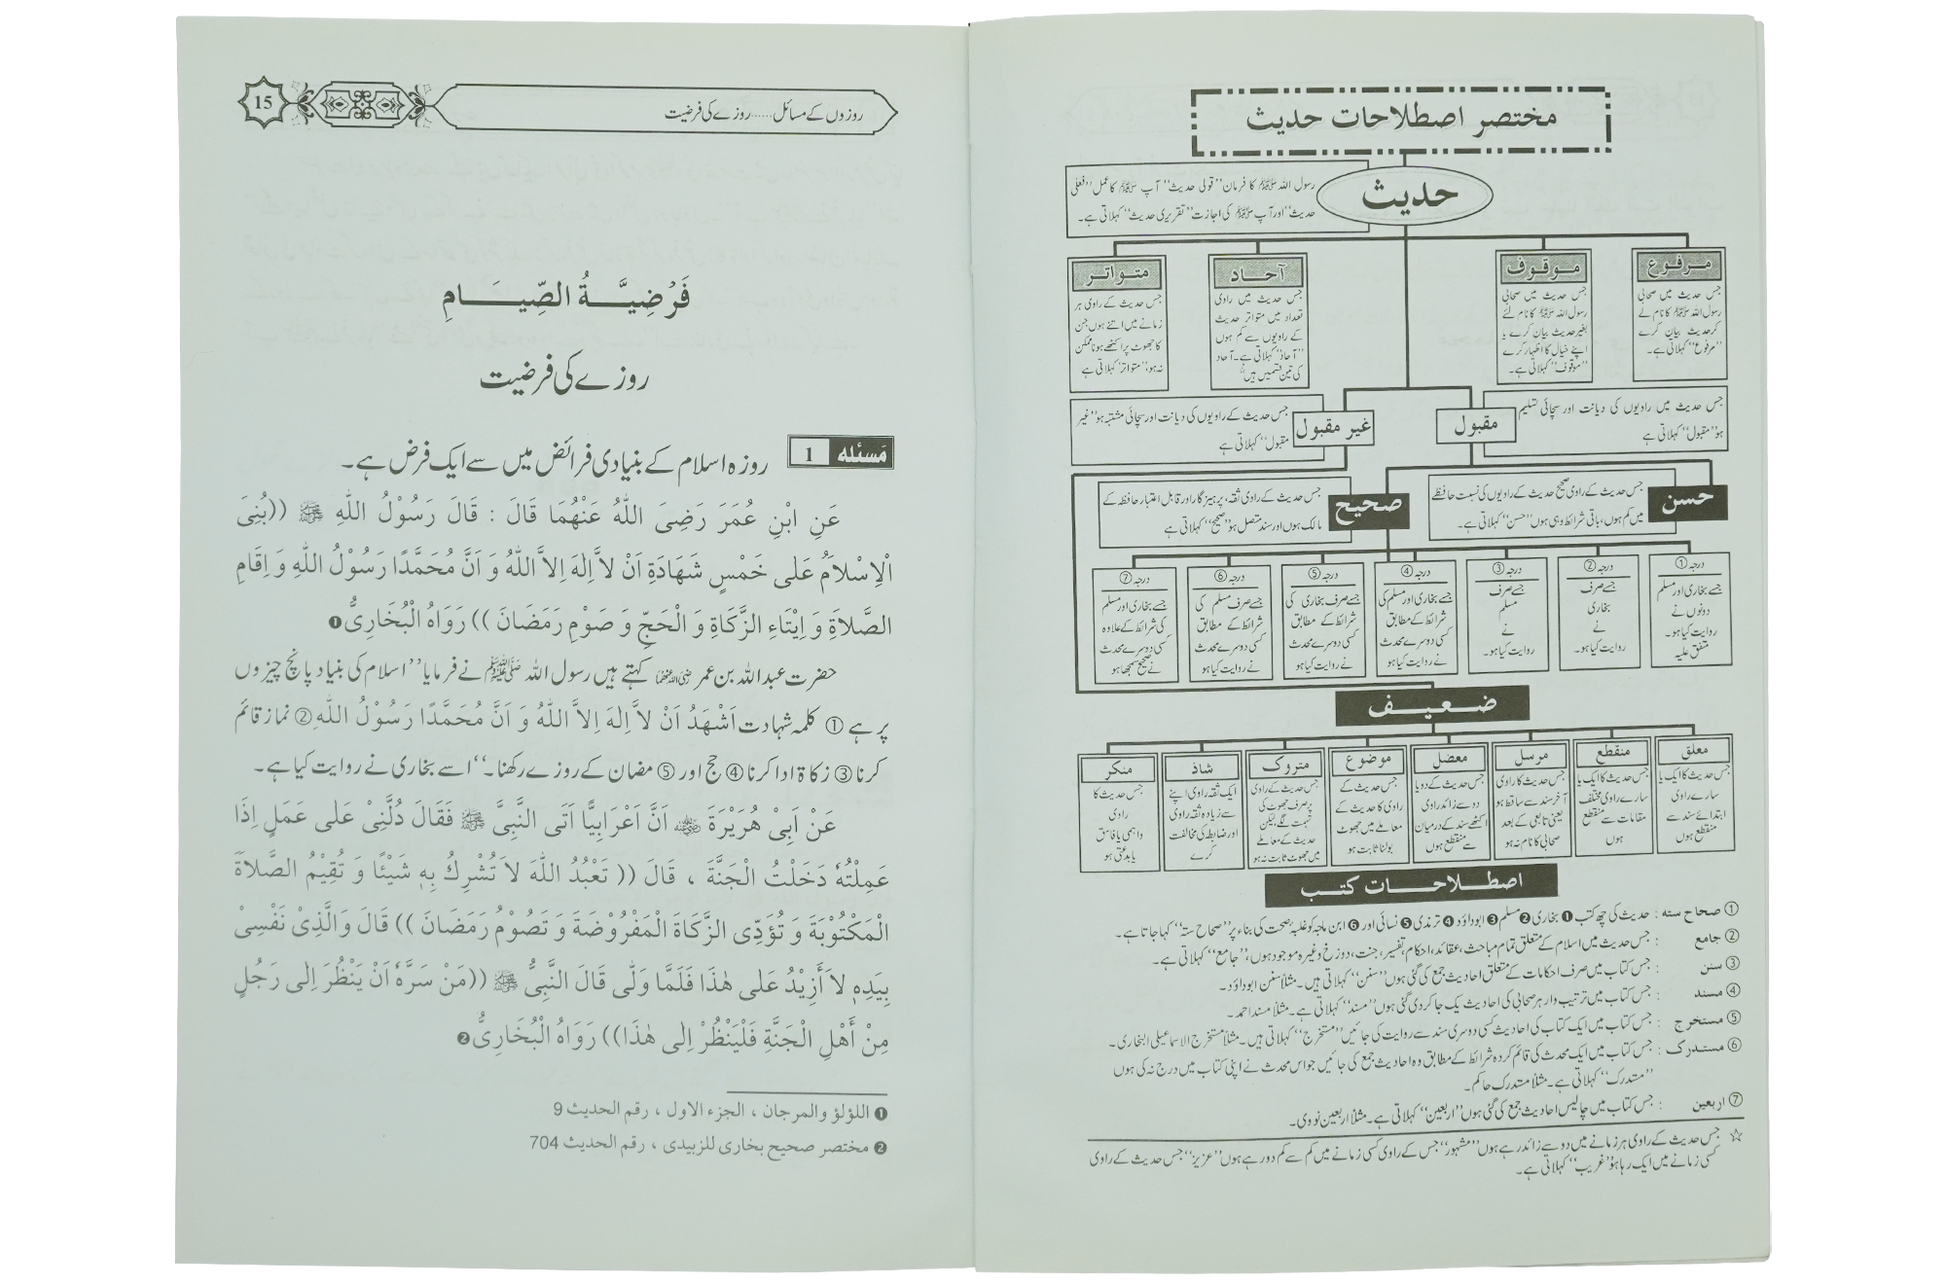 مختصر اصطلاحات حدیث
حدیث
رسول اللہ ﷺ کا فرمان ’’قولی حدیث‘‘ آپ ﷺ کا عمل ’’فعلی
حدیث‘‘ اور آپ ﷺ کی اجازت ’’تقریری حدیث‘‘ کہلاتی ہے۔
مرفوع
جس حدیث میں صحابی
رسول اللہ ﷺ کا نام لے
کر حدیث بیان کرے
’’مرفوع‘‘ کہلاتی ہے۔
موقوف
جس حدیث میں صحابی
رسول اللہ ﷺ کا نام لئے
بغیر حدیث بیان کرے یا
اپنے خیال کا اظہار کرے
’’موقوف‘‘ کہلاتی ہے۔
آحاد
جس حدیث میں راوی
تعداد میں متواتر حدیث
کے راویوں سے کم ہوں
’’آحاد‘‘ کہلاتی ہے۔ آحاد
کی تین قسمیں ہیں
متواتر
جس حدیث کے راوی ہر
زمانے میں اتنے ہوں جن
کا جھوٹ پر اکٹھے ہونا ممکن
نہ ہو، ’’متواتر‘‘ کہلاتی ہے
مقبول
جس حدیث میں راویوں کی دیانت اور سچائی تسلیم
ہو ’’مقبول‘‘ کہلاتی ہے
غیر مقبول
جس حدیث کے راویوں کی دیانت اور سچائی مشتبہ ہو ’’غیر
مقبول‘‘ کہلاتی ہے
حسن
جس حدیث کے راوی صحیح حدیث کے راویوں کی نسبت حافظے
میں کم ہوں، باقی شرائط وہی ہوں ’’حسن‘‘ کہلاتی ہے۔
صحیح
جس حدیث کے راوی ثقہ، پرہیز گار اور قابل اعتبار حافظہ کے
مالک ہوں اور سند متصل ہو ’’صحیح‘‘ کہلاتی ہے
درجہ ①
جسے بخاری اور مسلم
دونوں نے
روایت کیا ہو۔
متفق علیہ
درجہ ②
جسے صرف
بخاری
نے
روایت کیا ہو۔
درجہ ③
جسے صرف
مسلم
نے
روایت کیا ہو۔
درجہ ④
جسے بخاری اور مسلم کی
شرائط کے مطابق
کسی دوسرے محدث
نے روایت کیا ہو
درجہ ⑤
جسے صرف بخاری کی
شرائط کے مطابق
کسی دوسرے محدث
نے روایت کیا ہو
درجہ ⑥
جسے صرف مسلم کی
شرائط کے مطابق
کسی دوسرے محدث
نے روایت کیا ہو
درجہ ⑦
جسے بخاری اور مسلم
کی شرائط کے علاوہ
کسی دوسرے محدث
نے صحیح سمجھا ہو
ضعیف
معلق
جس حدیث کا ایک یا
سارے راوی
ابتدائے سند سے
منقطع ہوں
منقطع
جس حدیث کا ایک یا
سارے راوی مختلف
مقامات سے منقطع
ہوں
مرسل
جس حدیث کا راوی
آخر سند سے ساقط ہو
یعنی تابعی کے بعد
صحابی کا نام نہ ہو
معضل
جس حدیث کے دو یا
دو سے زائد راوی
اکٹھے سند کے درمیان
سے منقطع ہوں
موضوع
جس حدیث کے
راوی کا حدیث کے
معاملے میں جھوٹ
بولنا ثابت ہو
متروک
جس حدیث کے راوی
پر صرف جھوٹ کی
تہمت لگے لیکن
حدیث کے معاملے
میں جھوٹ ثابت نہ ہو
شاذ
ایک ثقہ راوی اپنے
سے زیادہ ثقہ راوی
اور ضابطہ کی مخالفت
کرے
منکر
جس حدیث کا
راوی
واہمی یا فاسق
یا بدعتی ہو
اصطلاحات کتب
① صحاح ستہ : حدیث کی چھ کتب ❶ بخاری ❷ مسلم ❸ ابوداؤد ❹ ترمذی ❺ نسائی اور ❻ ابن ماجہ کو غلبہ صحت کی بناء پر ’’صحاح ستہ‘‘ کہا جاتا ہے۔
② جامع : جس حدیث میں اسلام کے متعلق تمام مباحث، عقائد، احکام، تفسیر، جنت، دوزخ وغیرہ موجود ہوں، ’’جامع‘‘ کہلاتی ہے۔
③ سنن : جس کتاب میں صرف احکامات کے متعلق احادیث جمع کی گئی ہوں ’’سنن‘‘ کہلاتی ہیں۔ مثلاً سنن ابوداؤد۔
④ مسند : جس کتاب میں ترتیب وار ہر صحابی کی احادیث یک جا کردی گئی ہوں ’’مسند‘‘ کہلاتی ہے۔ مثلاً مسند احمد۔
⑤ مستخرج : جس کتاب میں ایک کتاب کی احادیث کسی دوسری سند سے روایت کی جائیں ’’مستخرج‘‘ کہلاتی ہیں۔ مثلاً مستخرج الاسماعیلی البخاری۔
⑥ مستدرک : جس کتاب میں ایک محدث کی قائم کردہ شرائط کے مطابق وہ احادیث جمع کی جائیں جو اس محدث نے اپنی کتاب میں درج نہ کی ہوں
’’مستدرک‘‘ کہلاتی ہے۔ مثلاً مستدرک حاکم۔
⑦ اربعین : جس کتاب میں چالیس احادیث جمع کی گئی ہوں ’’اربعین‘‘ کہلاتی ہے۔ مثلاً اربعین نووی۔
☆ جس حدیث کے راوی ہر زمانے میں دو سے زائد رہے ہوں ’’مشہور‘‘ جس کے راوی کسی زمانے میں کم سے کم دو رہے ہوں ’’عزیز‘‘ جس حدیث کے راوی
کسی زمانے میں ایک رہا ہو ’’غریب‘‘ کہلاتی ہے۔
روزوں کے مسائل ...... روزے کی فرضیت
15
فَرْضِيَّةُ الصِّيَامِ
روزے کی فرضیت
مَسئله 1 روزہ اسلام کے بنیادی فرائض میں سے ایک فرض ہے۔
عَنِ ابْنِ عُمَرَ رَضِىَ اللّٰهُ عَنْهُمَا قَالَ : قَالَ رَسُوْلُ اللّٰهِ ﷺ ((بُنِىَ
اْلاِسْلاَمُ عَلٰى خَمْسٍ شَهَادَةِ اَنْ لاَّ اِلٰهَ اِلاَّ اللّٰهُ وَ اَنَّ مُحَمَّدًا رَسُوْلُ اللّٰهِ وَ اِقَامِ
الصَّلاَةِ وَ اِيْتَاءِ الزَّكَاةِ وَ الْحَجِّ وَ صَوْمِ رَمَضَانَ )) رَوَاهُ الْبُخَارِىُّ❶
حضرت عبداللہ بن عمر رضی اللہ عنہما کہتے ہیں رسول اللہ ﷺ نے فرمایا ’’اسلام کی بنیاد پانچ چیزوں
پر ہے ① کلمہ شہادت اَشْهَدُ اَنْ لاَّ اِلٰهَ اِلاَّ اللّٰهُ وَ اَنَّ مُحَمَّدًا رَسُوْلُ اللّٰهِ ② نماز قائم
کرنا ③ زکاۃ ادا کرنا ④ حج اور ⑤ مضان کے روزے رکھنا۔‘‘ اسے بخاری نے روایت کیا ہے۔
عَنْ اَبِىْ هُرَيْرَةَ ﷺ اَنَّ اَعْرَابِيًّا اَتَى النَّبِىَّ ﷺ فَقَالَ دُلَّنِىْ عَلٰى عَمَلٍ اِذَا
عَمِلْتُهٗ دَخَلْتُ الْجَنَّةَ ، قَالَ (( تَعْبُدُ اللّٰهَ لاَ تُشْرِكُ بِهٖ شَيْئًا وَ تُقِيْمُ الصَّلاَةَ
الْمَكْتُوْبَةَ وَ تُؤَدِّى الزَّكَاةَ الْمَفْرُوْضَةَ وَ تَصُوْمُ رَمَضَانَ )) قَالَ وَالَّذِىْ نَفْسِىْ
بِيَدِهٖ لاَ أَزِيْدُ عَلٰى هٰذَا فَلَمَّا وَلّٰى قَالَ النَّبِىُّ ﷺ ((مَنْ سَرَّهٗ اَنْ يَنْظُرَ اِلٰى رَجُلٍ
مِنْ أَهْلِ الْجَنَّةِ فَلْيَنْظُرْ اِلٰى هٰذَا)) رَوَاهُ الْبُخَارِىُّ❷
❶ اللؤلؤ والمرجان ، الجزء الاول ، رقم الحديث 9
❷ مختصر صحيح بخارى للزبيدى ، رقم الحديث 704